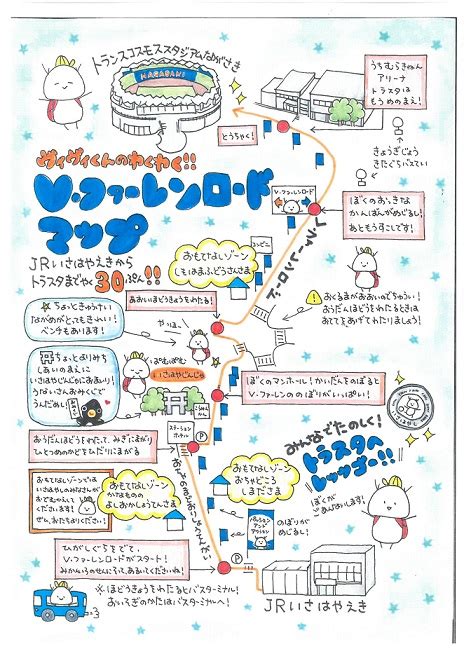 トランスコスモススタジアムながさき
NAGASAKI
うちむらきねん
アリーナ
トラスタは
もうめのまえ!
とうちゃく!
きょうぎじょう
きたぐちバスてい
ヴィヴィくんのわくわく!!
V・ファーレンロード
マップ
JRいさはやえきから
トラスタまでやく30ぷん!!
V・ファーレンロード
ぼくのおっきな
かんばんがめじるし!
あともうすこしです!
V・ファーレンロード
コンビニ
おもてなしゾーン
しもはまふどうさんさま
あおいほどうきょうをわたる!
おくるまがおおいのでちゅうい!
おうだんほどうをわたるときは
おててをあげてわたりましょう!
ちょっときゅうけい
ながめがとってもきれい!
ベンチもあります!
やっほ〜
ちょっとよりみち
しあいのまえに
いさはやじんじゃにおまいり!
うないさんおみくじで
うんだめし!
ぱむぱむ
いさはやじんじゃ
こうつうあんぜん
ぼくのマンホール!かいだんをのぼると
V・ファーレンののぼりがいっぱい!
ステーション
ホテル
P
おうだんほどうをわたって、みぎにまがり
ひとつめのかどをひだりにまがる
みんなでたのしく!
トラスタへ
レッツゴー!!
おもてなしゾーンでは
いさはやのみなさんが
おでむかえして
くださいます!
ぜひ、おたちよりください!
おもてなしゾーン
かなもの
よしおかしょうてんさま
おもてなしゾーン
おちゃどころ
しまださま
ぼくが
ごあんないします!
パッション
アンド
アクション
のぼりが
めじるし!
ひがしぐちをでて、
V・ファーレンロードがスタート!
みかんいろのせんにそって、あるいてくださいね!
P
※ほどうきょうをわたるとバスターミナル!
おいそぎのかたはバスターミナルへ!
JRいさはやえき